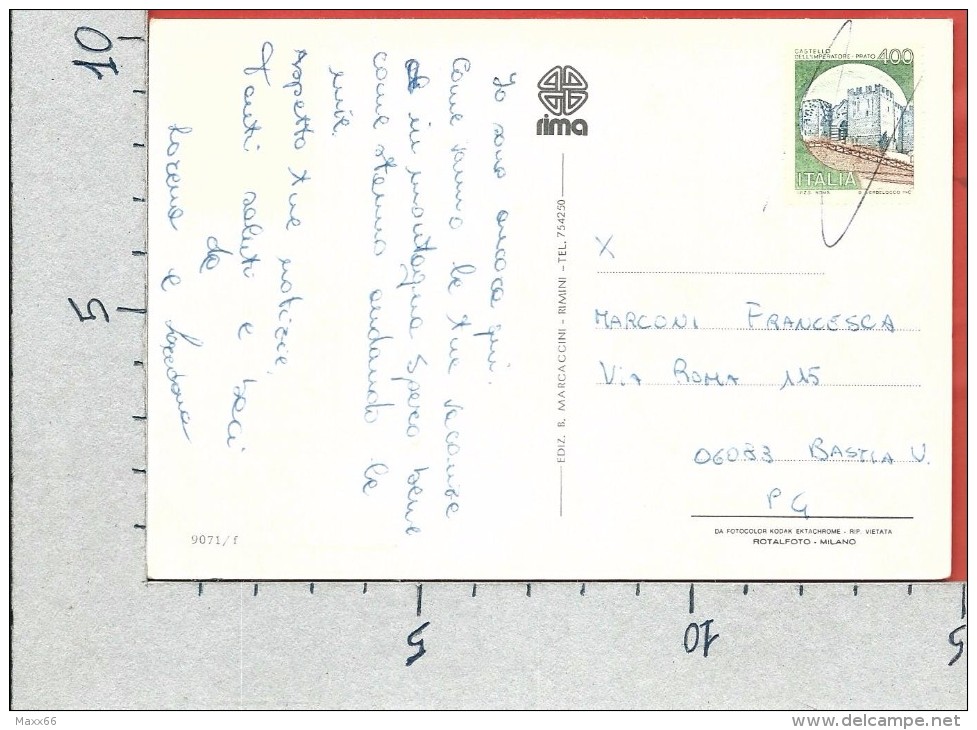 Io sono ancora qui.
Come vanno le tue vacanze
in montagna spero bene
come stanno andando le
mie.
Aspetto tue notizie,
Tanti saluti e baci
da
Lorena e Loredana
rima
EDIZ. B. MARCACCINI - RIMINI - TEL. 754250
CASTELLO
DELL'IMPERATORE - PRATO 400
ITALIA
X
MARCONI FRANCESCA
VIA ROMA 115
06083 BASTIA U.
PG
DA FOTOCOLOR KODAK EKTACHROME - RIP. VIETATA
ROTALFOTO - MILANO
9071/f
10
5
5
10
5
Maxx66
www.delcampe.net